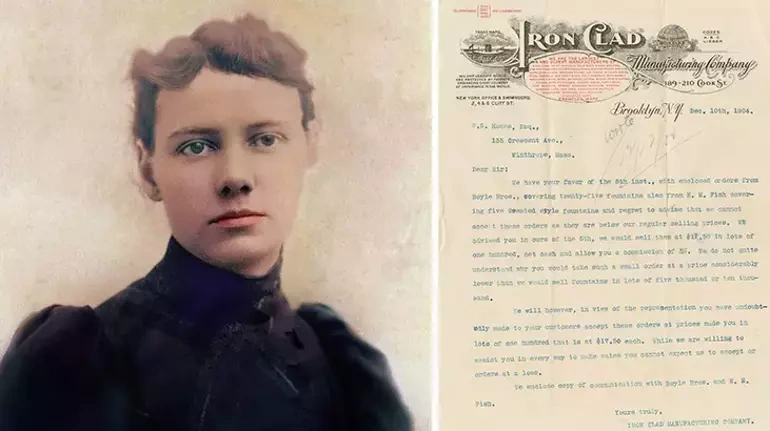 TRADE MARK.
IRON CLAD
Manufacturing Company
CODES
A B C
LIEBER
189-210 COOK ST.
NEW YORK OFFICE &
2, 4 & 6 CLIFF ST.
Brooklyn, N.Y. Dec. 10th, 1904.
Esq.,
135 Crescent Ave.,
Winthrop, Mass.
Dear Sir:
We have your favor of the 8th inst., with enclosed orders from
Boyle Bros., covering twenty-five fountains also from H. M. Fish cover-
ing five style fountains and regret to advise that we cannot
accept these orders as they are below our regular selling prices. We
advised you in ours of the 5th, we would sell them at $17.50 in lots of
one hundred, net cash and allow you a commission of We do not quite
understand why you would take such a small order at a price considerably
lower than we would sell fountains in lots of five thousand or ten thou-
sand.
We will however, in view of the representation you have undoubt-
edly made to your customers accept these orders at prices made you in
lots of one hundred that is at $17.50 each. While we are willing to
assist you in every way to make sales you cannot expect us to accept or
orders at a loss.
We enclose copy of communication with Boyle Bros. and H. M.
Fish.
Yours truly,
IRON CLAD MANUFACTURING COMPANY.